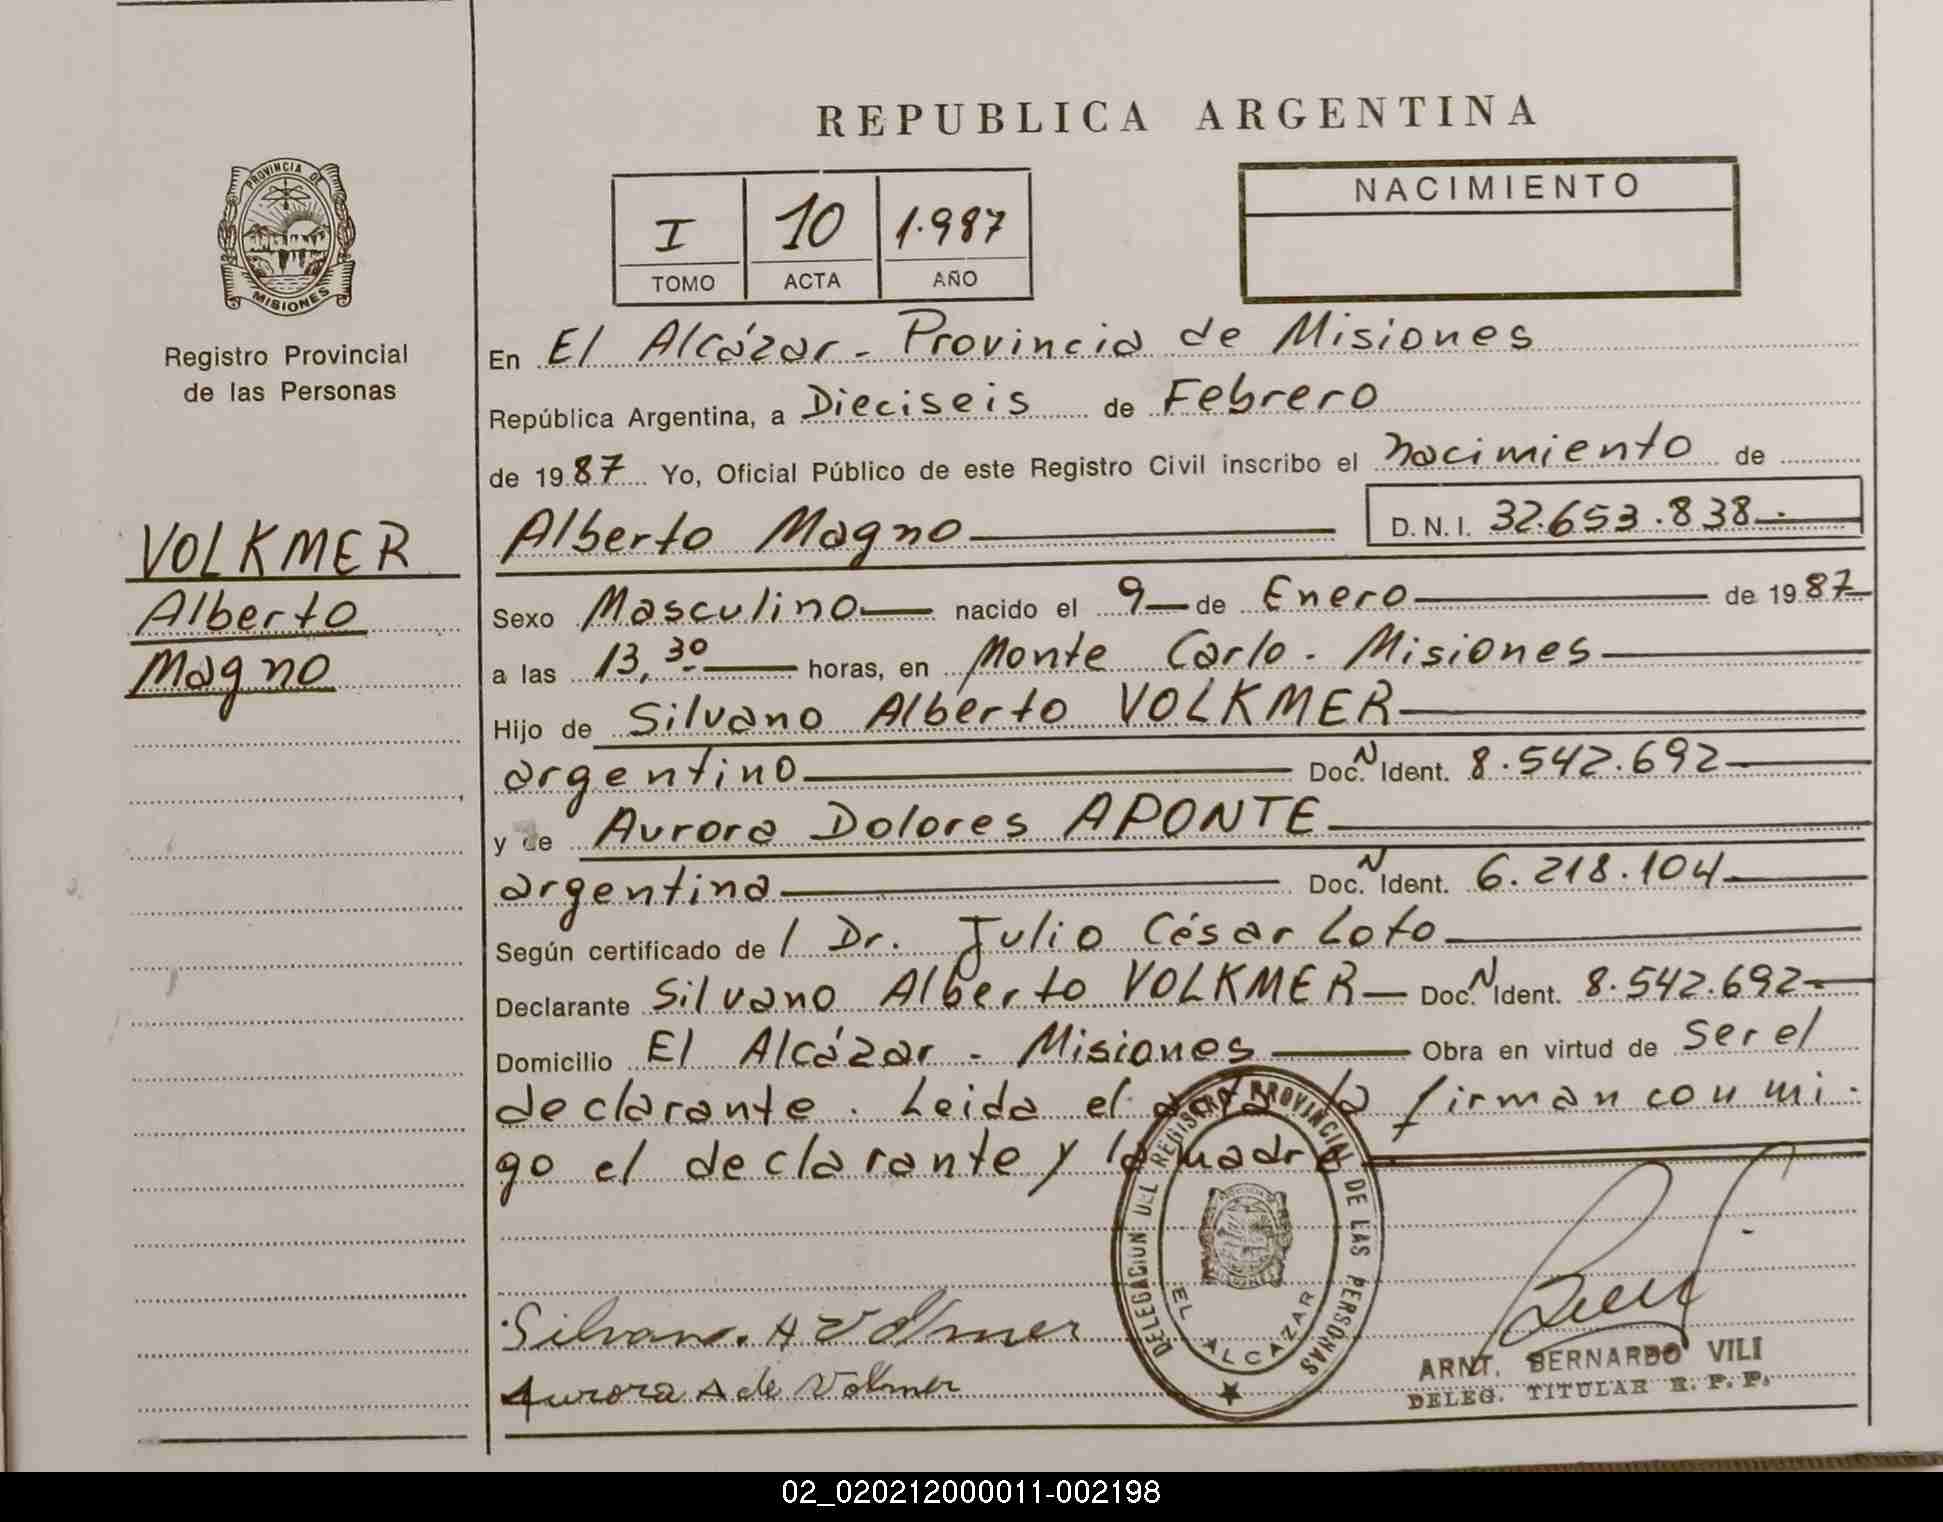 REPUBLICA ARGENTINA
PROVINCIA DE
MISIONES
Registro Provincial
de las Personas
I 10 1.987
TOMO ACTA AÑO
NACIMIENTO
VOLKMER
Alberto
Magno
En El Alcázar - Provincia de Misiones
República Argentina, a Dieciseis de Febrero
de 1987 Yo, Oficial Público de este Registro Civil inscribo el nacimiento de
Alberto Magno D.N.I. 32.653.838-.
Sexo Masculino nacido el 9 de Enero de 1987
a las 13,30 horas, en Monte Carlo - Misiones
Hijo de Silvano Alberto VOLKMER
argentino Doc. N Ident. 8.542.692
y de Aurora Dolores APONTE
argentina Doc. N Ident. 6.218.104
Según certificado de / Dr. Julio César Loto
Declarante Silvano Alberto VOLKMER Doc. N Ident. 8.542.692
Domicilio El Alcázar - Misiones Obra en virtud de ser el
declarante. Leida el acta la firman con mi-
go el declarante y la madre
DELEGACION DEL REGISTRO PROVINCIAL DE LAS PERSONAS
EL ALCAZAR
Silvano. A Volmer
Aurora A de Volmer
ARNT. BERNARDO VILI
DELEG. TITULAR R. P. P.
02_020212000011-002198